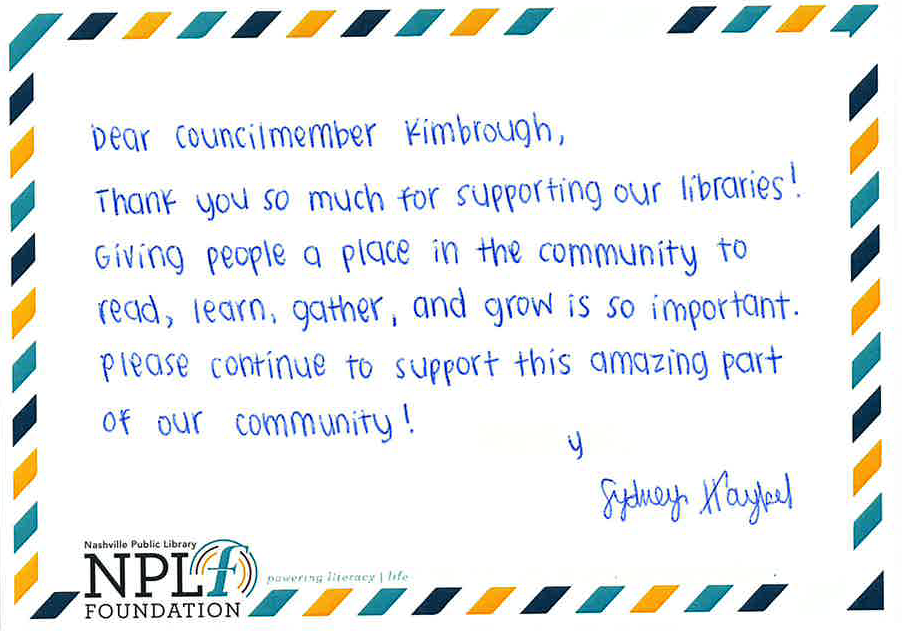 Dear Councilmember Kimbrough,
Thank you so much for supporting our libraries!
Giving people a place in the community to
read, learn, gather, and grow is so important.
Please continue to support this amazing part
of our community!
y
Sydney
Nashville Public Library
NPLf
FOUNDATION
powering literacy | life